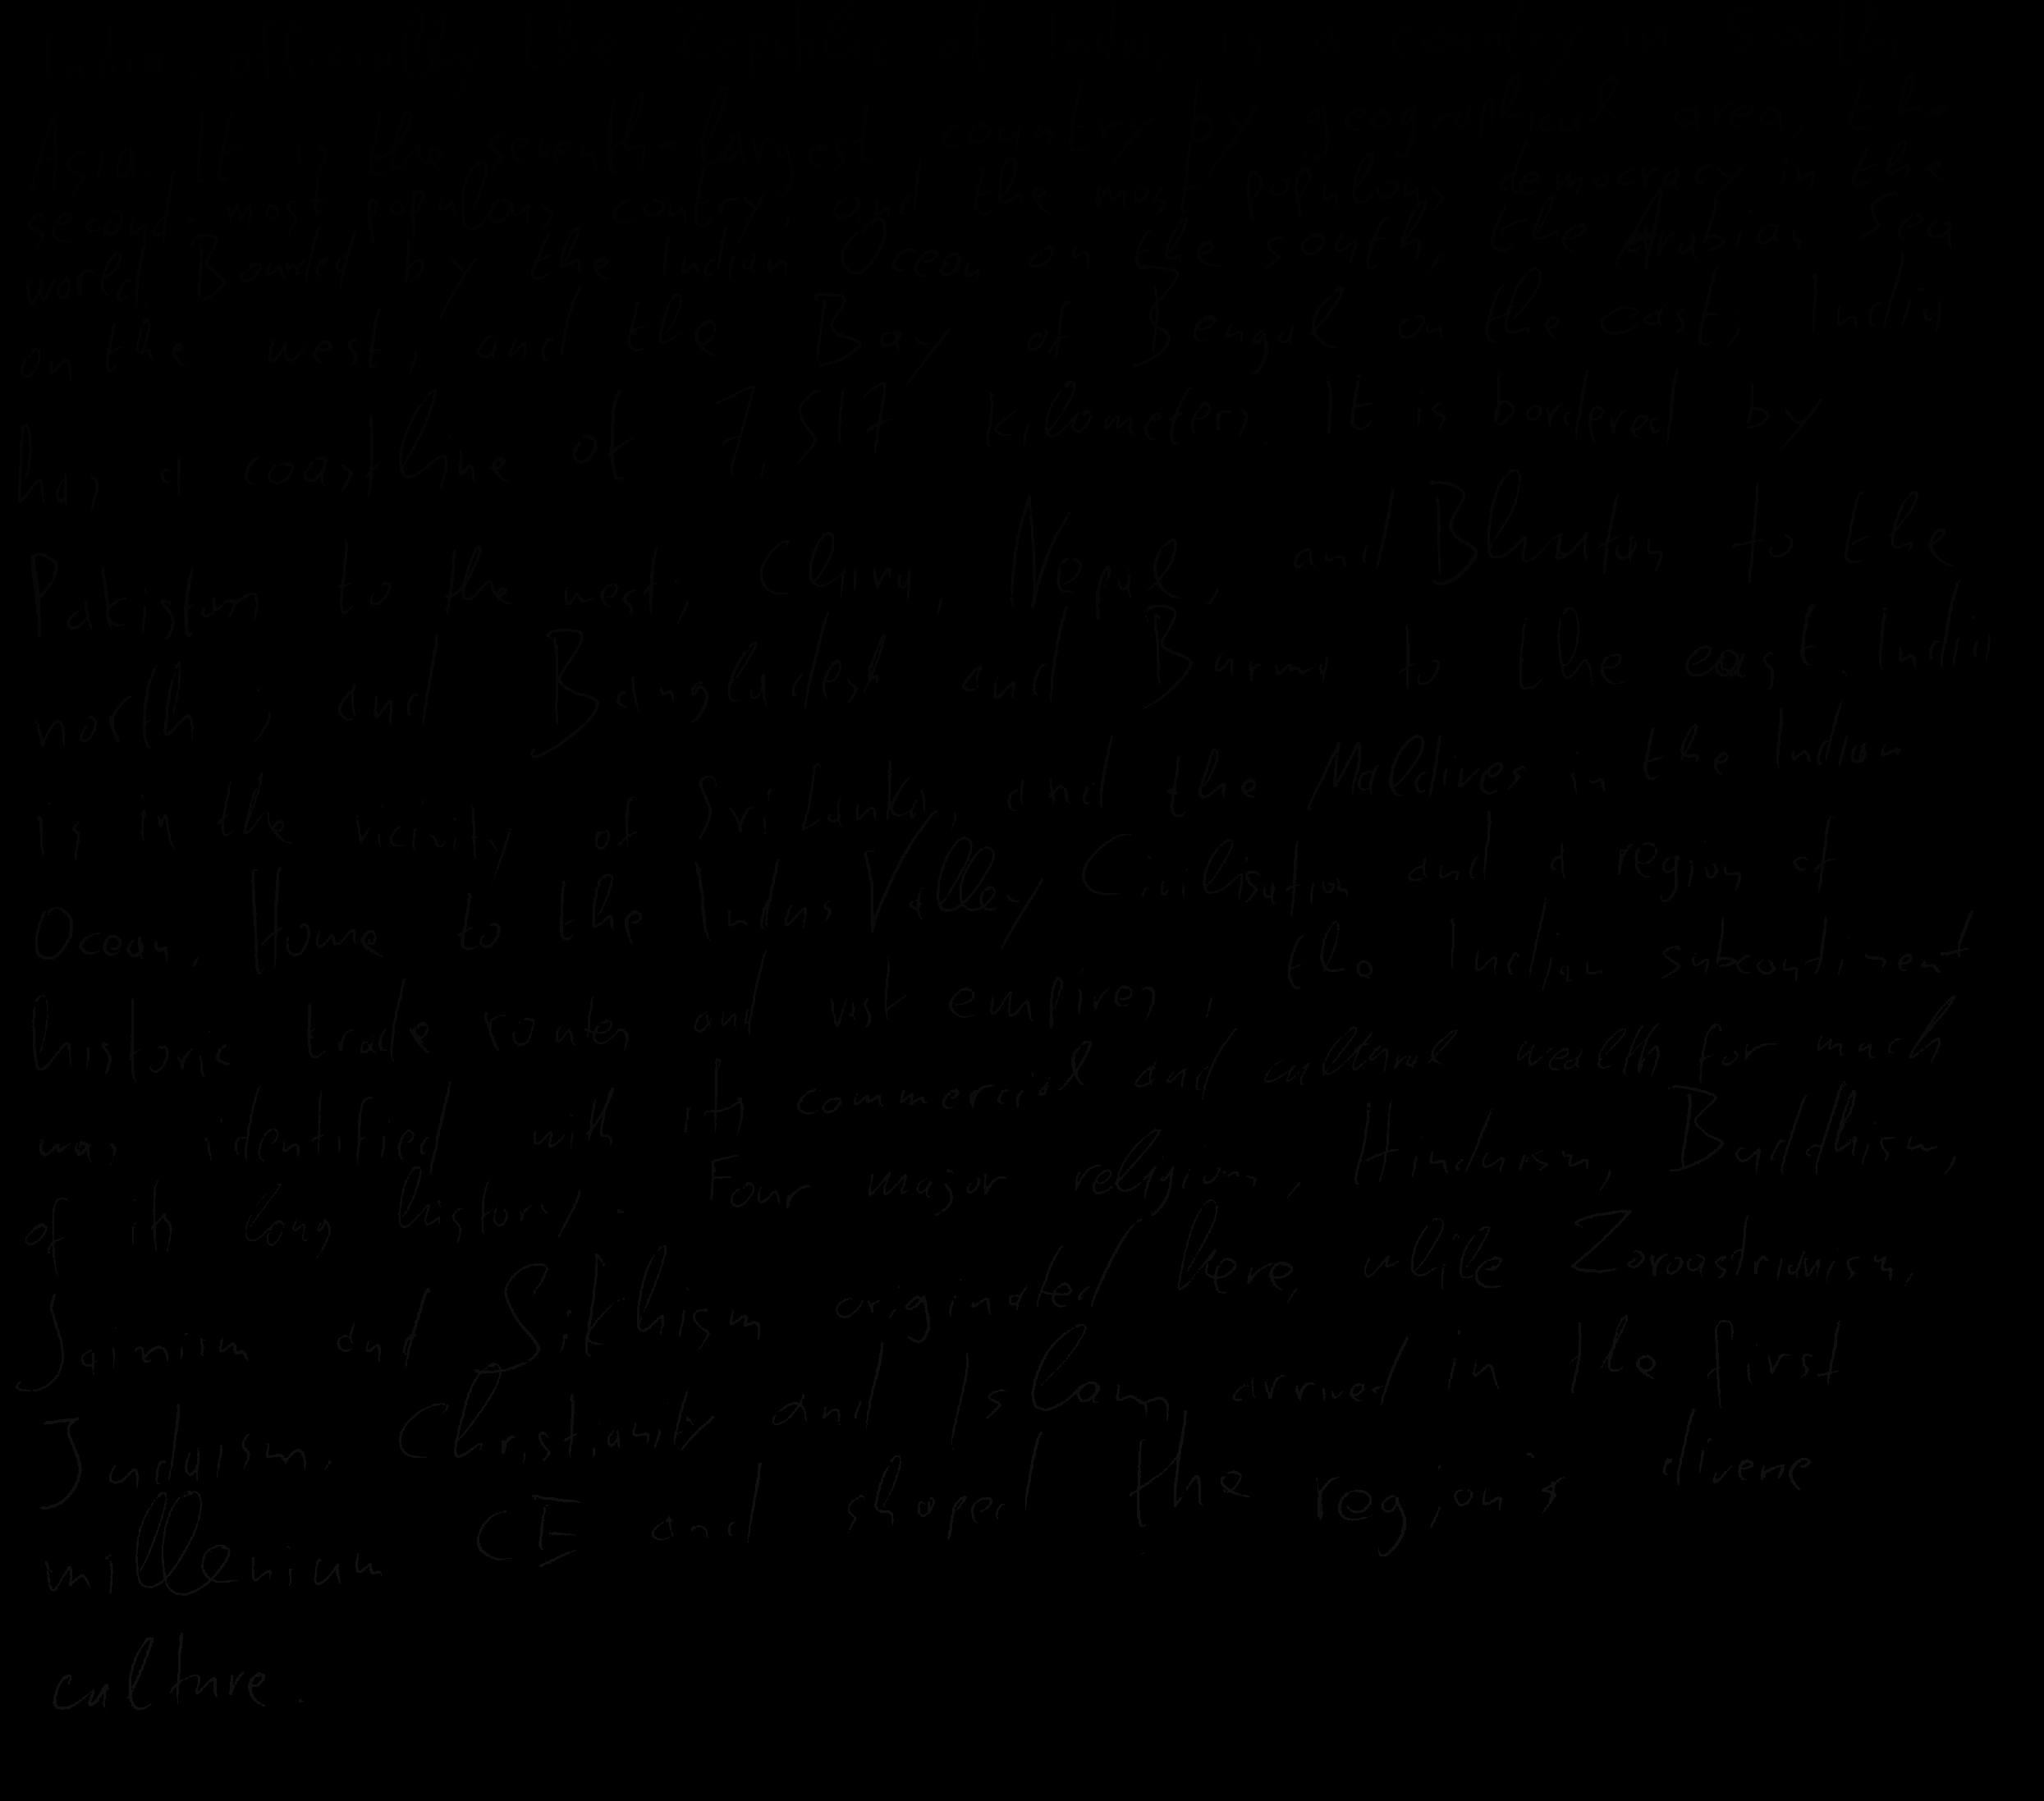 Asia. It is the seventh-largest country by geographical area, the
second-most populous contry, and the most populous democracy in the
world. Bounded by the Indian Ocean on the south, the Arabian Sea
on the west, and the Bay of Bengal on the east, India
has a coastline of 7,517 kilometers. It is bordered by
Pakistan to the west; China, Nepal, and Bhutan to the
north; and Bangladesh and Burma to the east. India
is in the vicinity of Sri Lanka, and the Maldives in the Indian
Ocean. Home to the Indus Valley Civilisation and a region of
historic trade routes and vast empires, the Indian subcontinent
was identified with its commercial and cultural wealth for much
of its long history. Four major religions, Hinduism, Buddhism,
Jainism and Sikhism originated here, while Zoroastrianism,
Judaism, Christianity and Islam arrived in the first
millenium CE and shaped the region's diverse
culture.